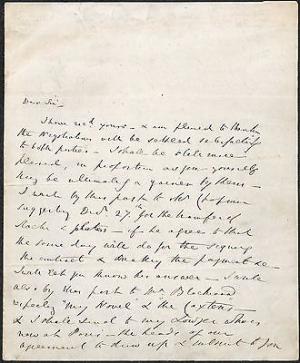 Dear Sir—
I have recd. yours — & am pleased to think
the negotiation will be settled satisfactorily
to both parties — I shall be still more
pleased, in proportion as you yourselves
may be ultimately a gainer by them —
I wrote by this post to Mr
suggesting Decr. 27 for the transfer of
stock & — if he agrees to that
the same day will do for the signing
the contract & making the payment &c —
I will let you know his answer — I write
also by this post to Mr. Blackwood
respecting "My Novel" & the Caxtons —
& I shall send to my Lawyer who is
now at Paris — the heads of our
agreement to draw up & submit to you